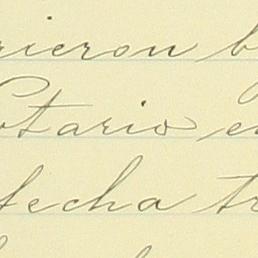 rieron b
otario en
fecha tr